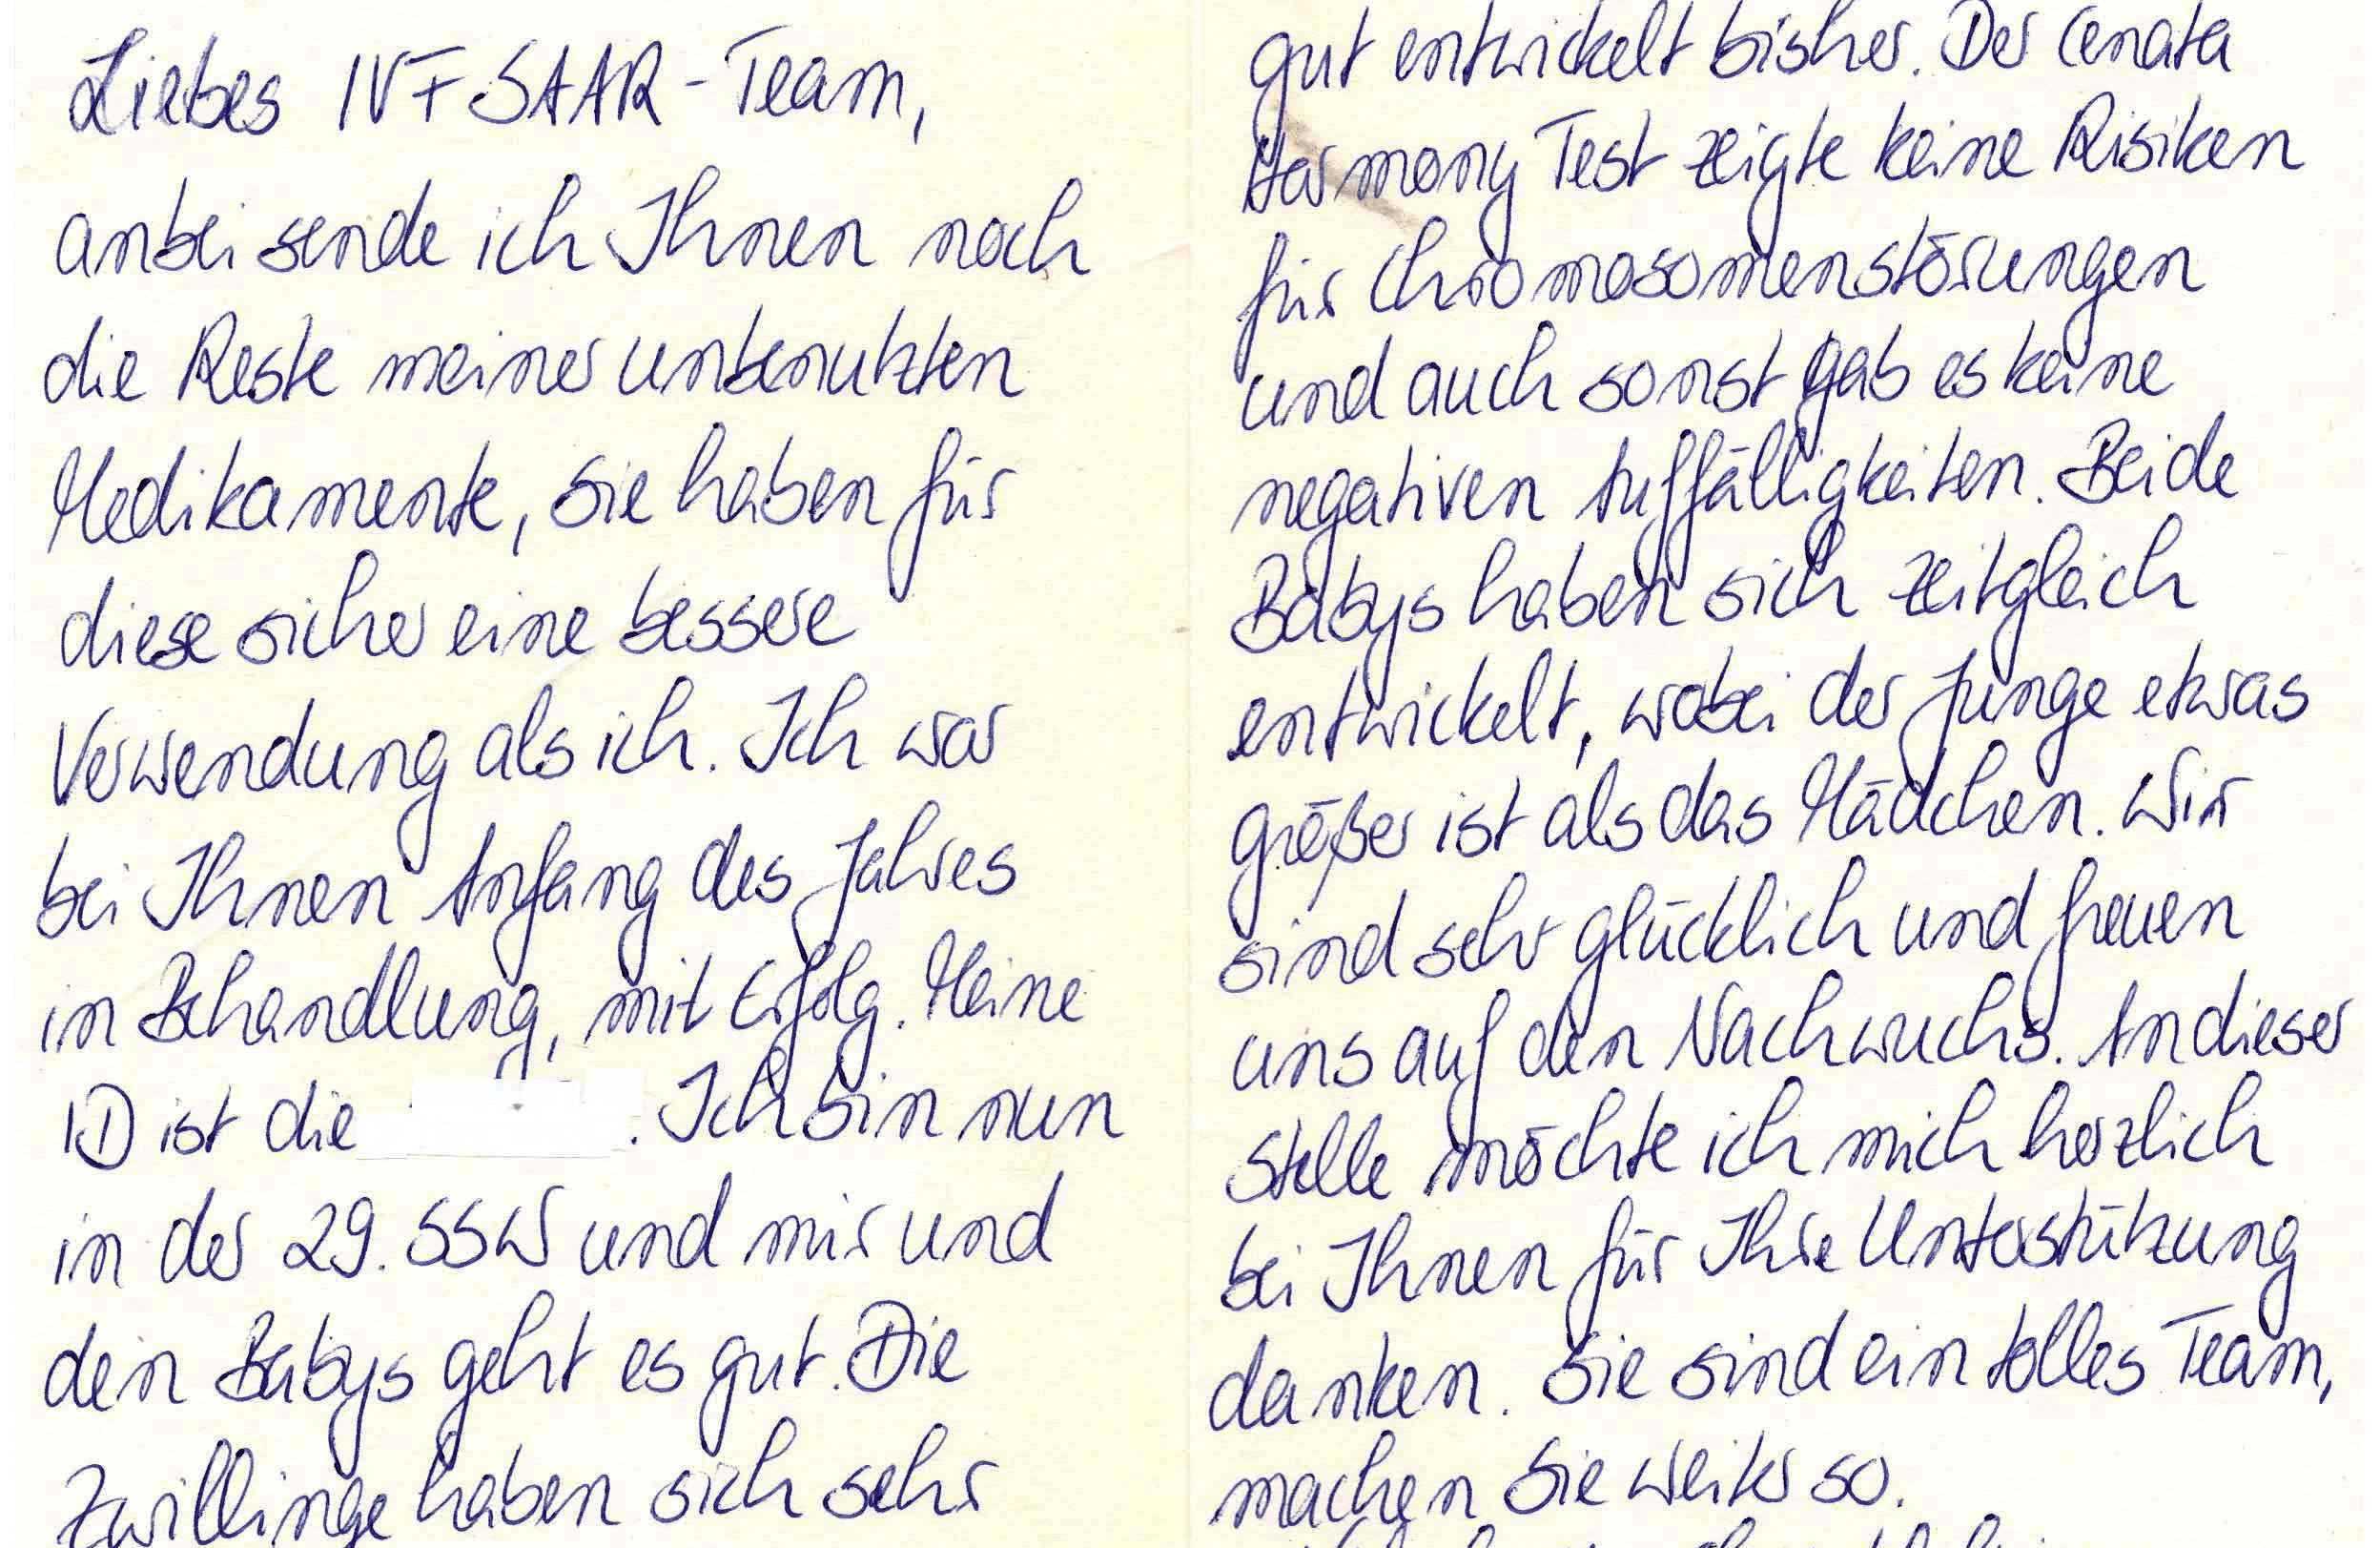 Liebes IVF SAAR-Team,
anbei sende ich Ihnen noch
die Reste meiner unbenutzten
Medikamente, Sie haben für
diese sicher eine bessere
Verwendung als ich. Ich war
bei Ihnen Anfang des Jahres
in Behandlung, mit Erfolg. Meine
ID ist die . Ich bin nun
in der 29. SSW und mir und
den Babys geht es gut. Die
Zwillinge haben sich sehr
gut entwickelt bisher. Der Cenata
Harmony Test zeigte keine Risiken
für Chromosomenstörungen
und auch sonst gab es keine
negativen Auffälligkeiten. Beide
Babys haben sich zeitgleich
entwickelt, wobei der Junge etwas
größer ist als das Mädchen. Wir
sind sehr glücklich und freuen
uns auf den Nachwuchs. An dieser
Stelle möchte ich mich herzlich
bei Ihnen für Ihre Unterstützung
danken. Sie sind ein tolles Team,
machen Sie weiter so.